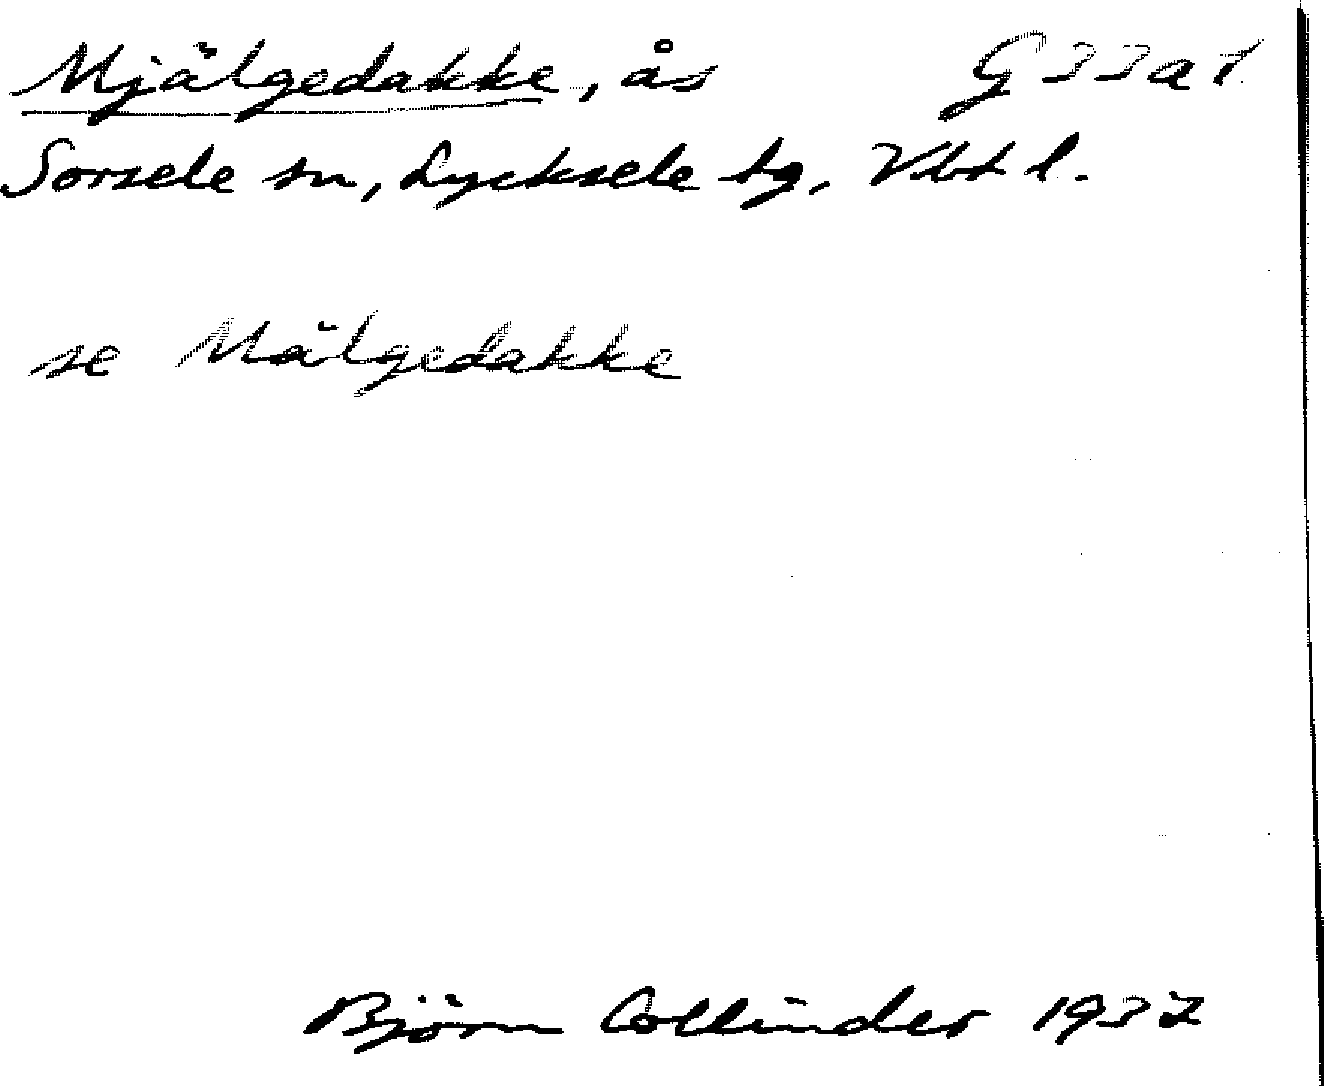 Mjälgedakke, ås G 33 a 1
Sorsele sn, Lycksele tg, Vbt l.
se Mälgedakke
Björn Collinder 1937